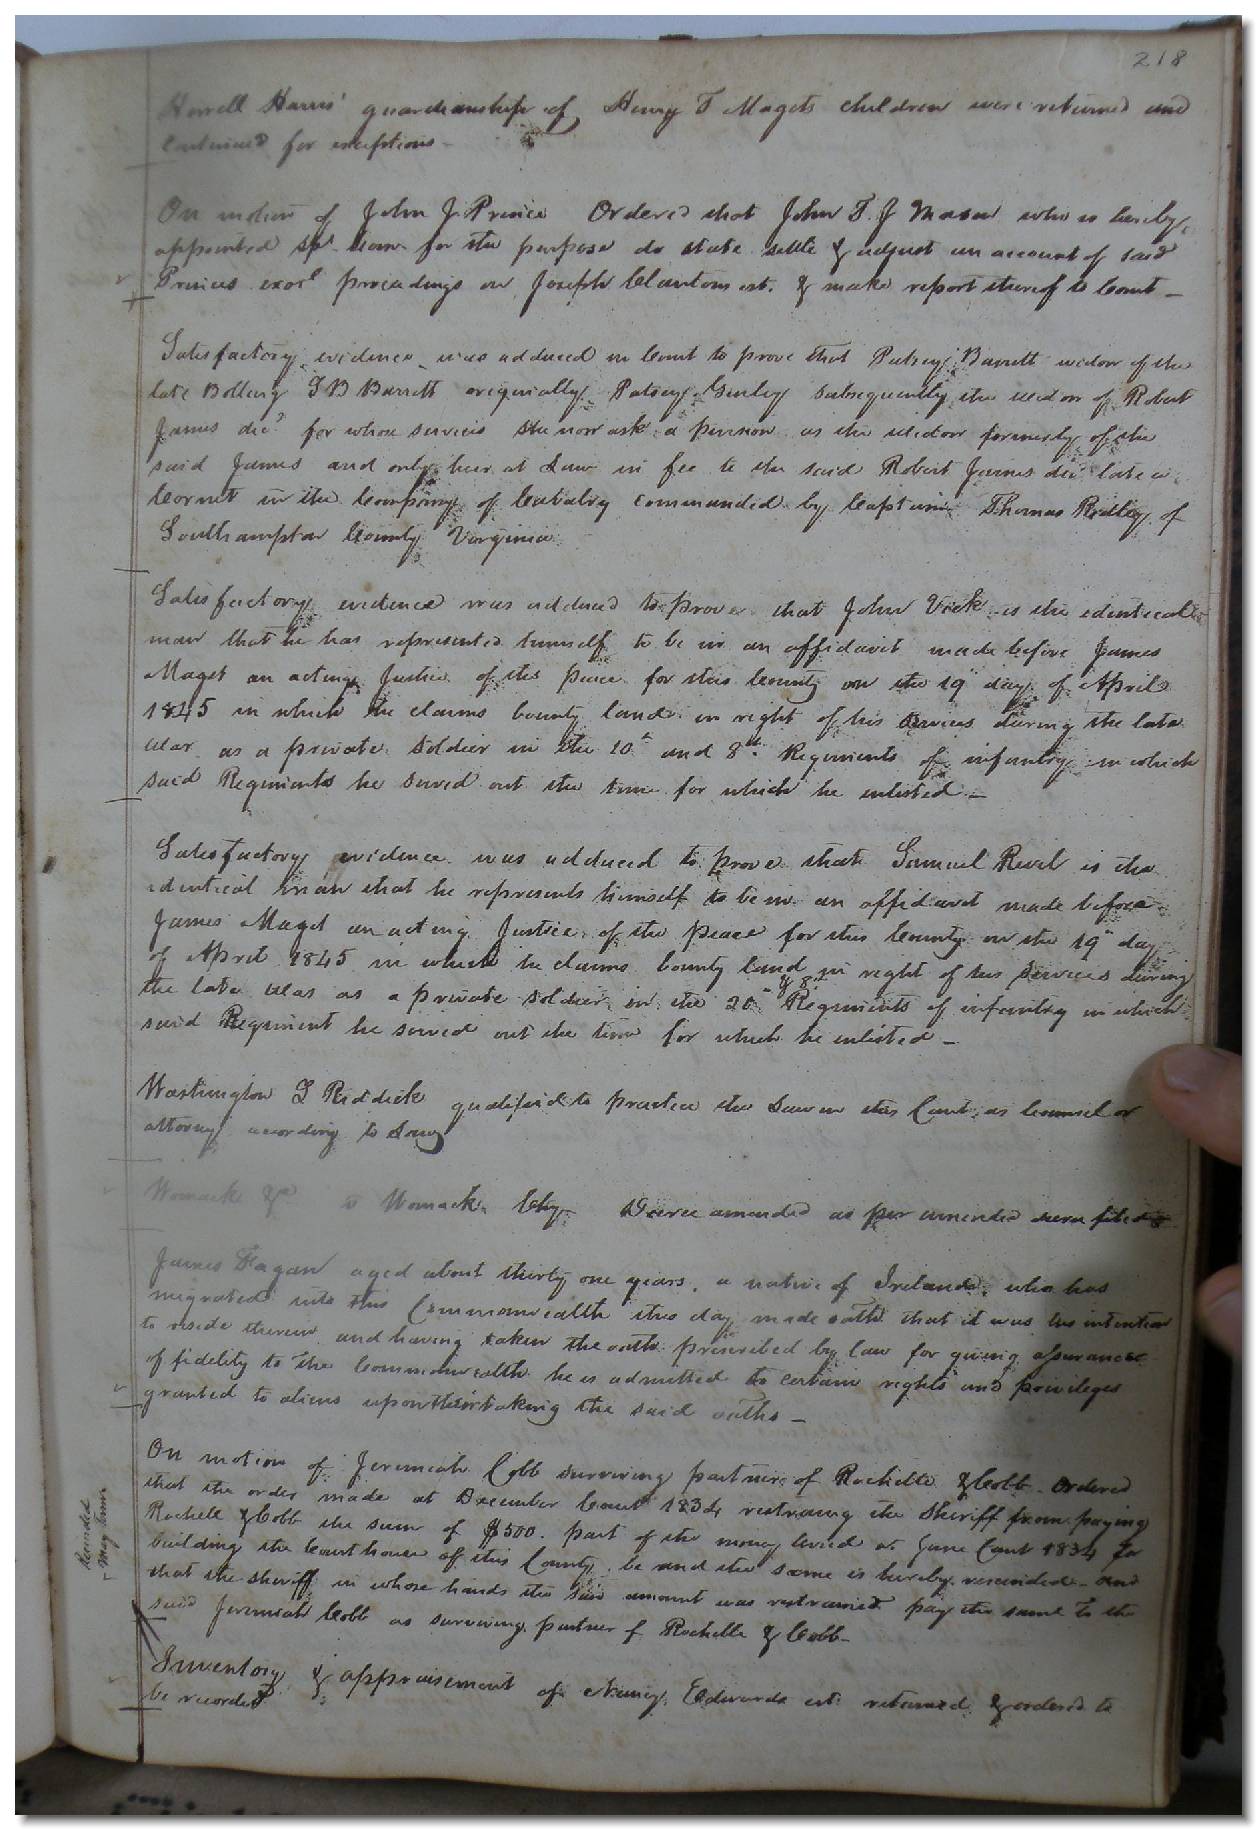 218
Howell Harris' guardianship of Henry T Magets children were returned and
continued for exceptions -
On motion of John J Prince Ordered that John T. J Mason who is hereby
appointed Spl. Com for the purpose do state settle & adjust an account of said
Princes exors proceedings on Joseph Clantons est. & make report thereof to Court -
Satisfactory evidence was adduced in Court to prove that Patsey Barrett widow of the
late Bolling B Barrett originally Patsey Gurley subsequently the widow of Robert
James decd for whose services she now ask a pension as the widow formerly of the
said James and only heir at Law in fee to the said Robert James decd late a
Cornet in the Company of Cavalry commanded by Captain Thomas Ridley of
Southampton County Virginia
Satisfactory evidence was adduced to prove that John Vick is the identical
man that he has represented himself to be in an affidavit made before James
Maget an acting Justice of the peace for this County on the 19th day of April
1845 in which he claims bounty land in right of his services during the late
war as a private soldier in the 20th and 8th Regiments of infantry in which
said Regiments he served out the time for which he enlisted -
Satisfactory evidence was adduced to prove that Samuel Revel is the
identical man that he represents himself to be in an affidavit made before
James Maget an acting Justice of the peace for this County on the 19th day
of April 1845 in which he claims bounty land in right of his services during
the late war as a private soldier in the 20th & 8th Regiments of infantry in which
said Regiment he served out the time for which he enlisted -
Washington L Riddick qualified to practice the Law in this Court as Counsel or
attorney according to Law
Womack &c vs Womack Chy Decree amended as per amended decree filed
James Fagan aged about thirty one years, a native of Ireland, who has
migrated into this Commonwealth this day made oath that it was his intention
to reside therein and having taken the oath prescribed by law for giving assurance
of fidelity to the Commonwealth he is admitted to certain rights and privileges
granted to aliens upon their taking the said oaths -
On motion of Jeremiah Cobb surviving partner of Rochelle & Cobb Ordered
that the order made at December Court 1834 restraining the Sheriff from paying
Rochell & Cobb the sum of $500. part of the money levied at June Court 1834 for
building the Courthouse of this County be and the same is hereby rescinded - and
that the sheriff in whose hands the said amount was restrained pay the same to the
said Jeremiah Cobb as surviving partner of Rochelle & Cobb -
Rescinded
May Term
Inventory & appraisement of Nancy Edwards est. returned & ordered to
be recorded